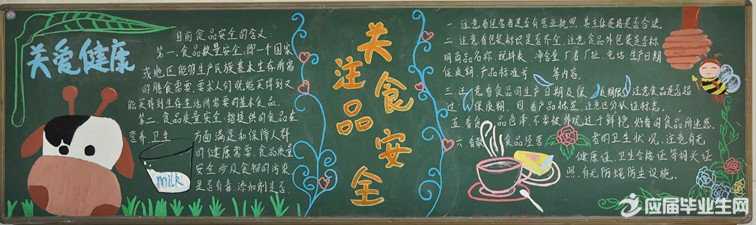 关爱健康
目前食品安全的含义
第一,食品数量安全,即一个国家
或地区能够生产民族基本生存所需
的膳食需要,要求人们既能买得到又
能买得到生存生活所需要的基本食品。
第二,食品质量安全,指提供的食品在
营养,卫生 方面满足和保障人群
的健康需要,食品质量
安全涉及食物的污染
是否有毒,添加剂是否
milk
关注食品安全
一、注意看经营者是否有营业执照,其主体资格是否合法。
二、注意看包装标识是否齐全,注意食品外包装是否标
明商品名称、配料表、净含量、厂名、厂址、电话、生产日期
保质期、产品标准号 等内容。
三、注意看食品的生产日期及保质期限,注意食品是否超
过保质期。 看产品标签,注意区分认证标志。
五、看食品色泽,不要被外观过于鲜艳、好看的食品所迷惑。
六、看 食品经营者的卫生状况,注意有无
健康证,卫生合格证等相关证
照,有无防蝇防尘设施。
应届毕业生网